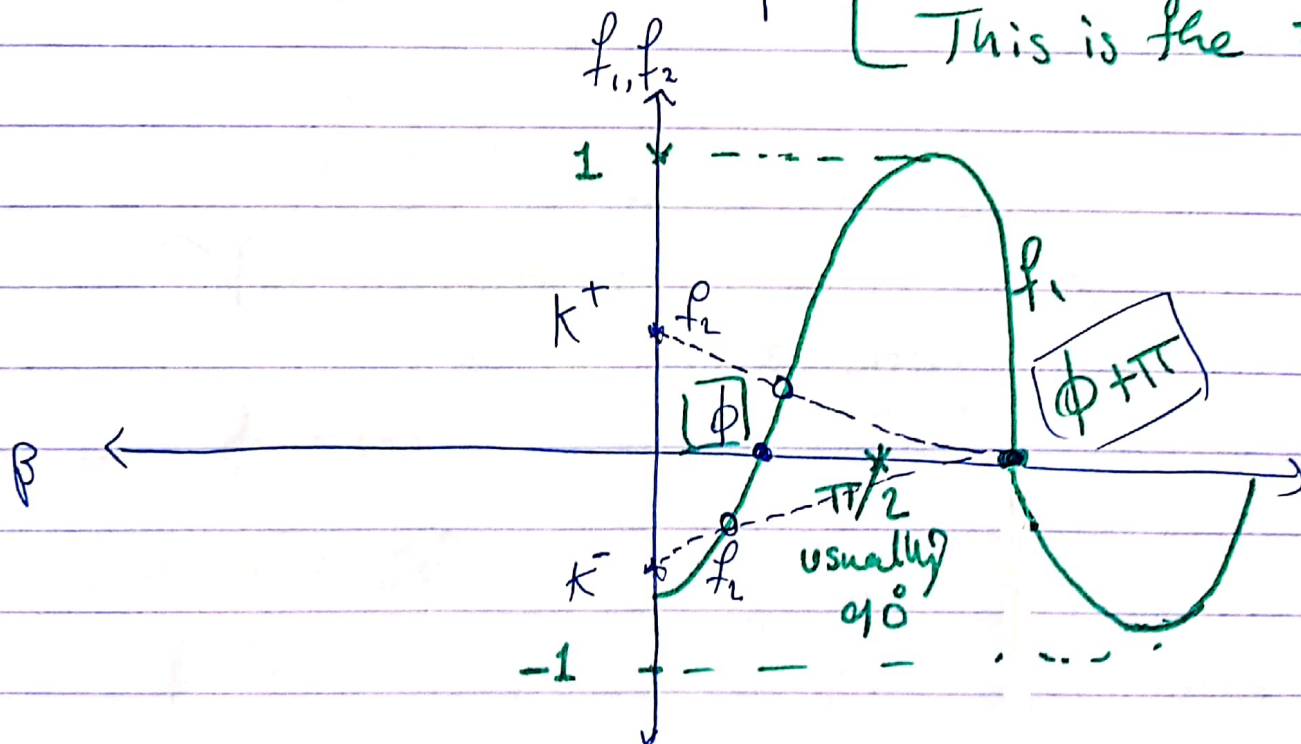 This is the
f₁, f₂
1
f₁
K⁺
f₂
ϕ+π
ϕ
β
π/2
usually
90°
K⁻
f₂
-1